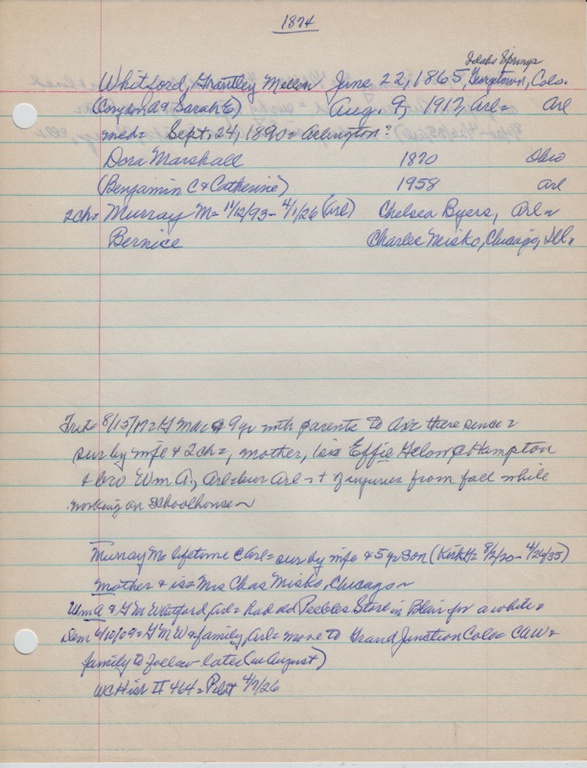 1874
Idaho Springs
Whitford, Grantley Mellen June 22, 1865, Georgetown, Colo.
(Corydon A & Sarah E) Aug. 9, 1917, Arl= Arl
med= Sept. 24, 1890= Arlington?
Dora Marshall 1870 Ohio
(Benjamin C & Catherine) 1958 Arl
2ch= Murray M= 11/12/93- 4/1/26 (Arl) Chelsea Byers, Arl=
Bernice Charles Misko, Chicago, Ill.
8/15/17= G M 9 yr with parents to there since=
sur by wife & 2 ch=, mother, Effie Hampton
& bro Wm A., Arl=bur Arl= + of injuries from fall while
working on schoolhouse~
Murray M= lifetime Arl= sur by wife & 5 yr son (Kirk H= 8/2/20- 4/26/35)
mother & Mrs Chas Misko, Chicago~
Wm A & G M Whitford, Arl= had Peebles Store in Blair for a while=
6/10/09= G M W= family, Arl= move to Grand Junction Colo=
family to follow later (in August)
WC Hist II 464= 4/7/26